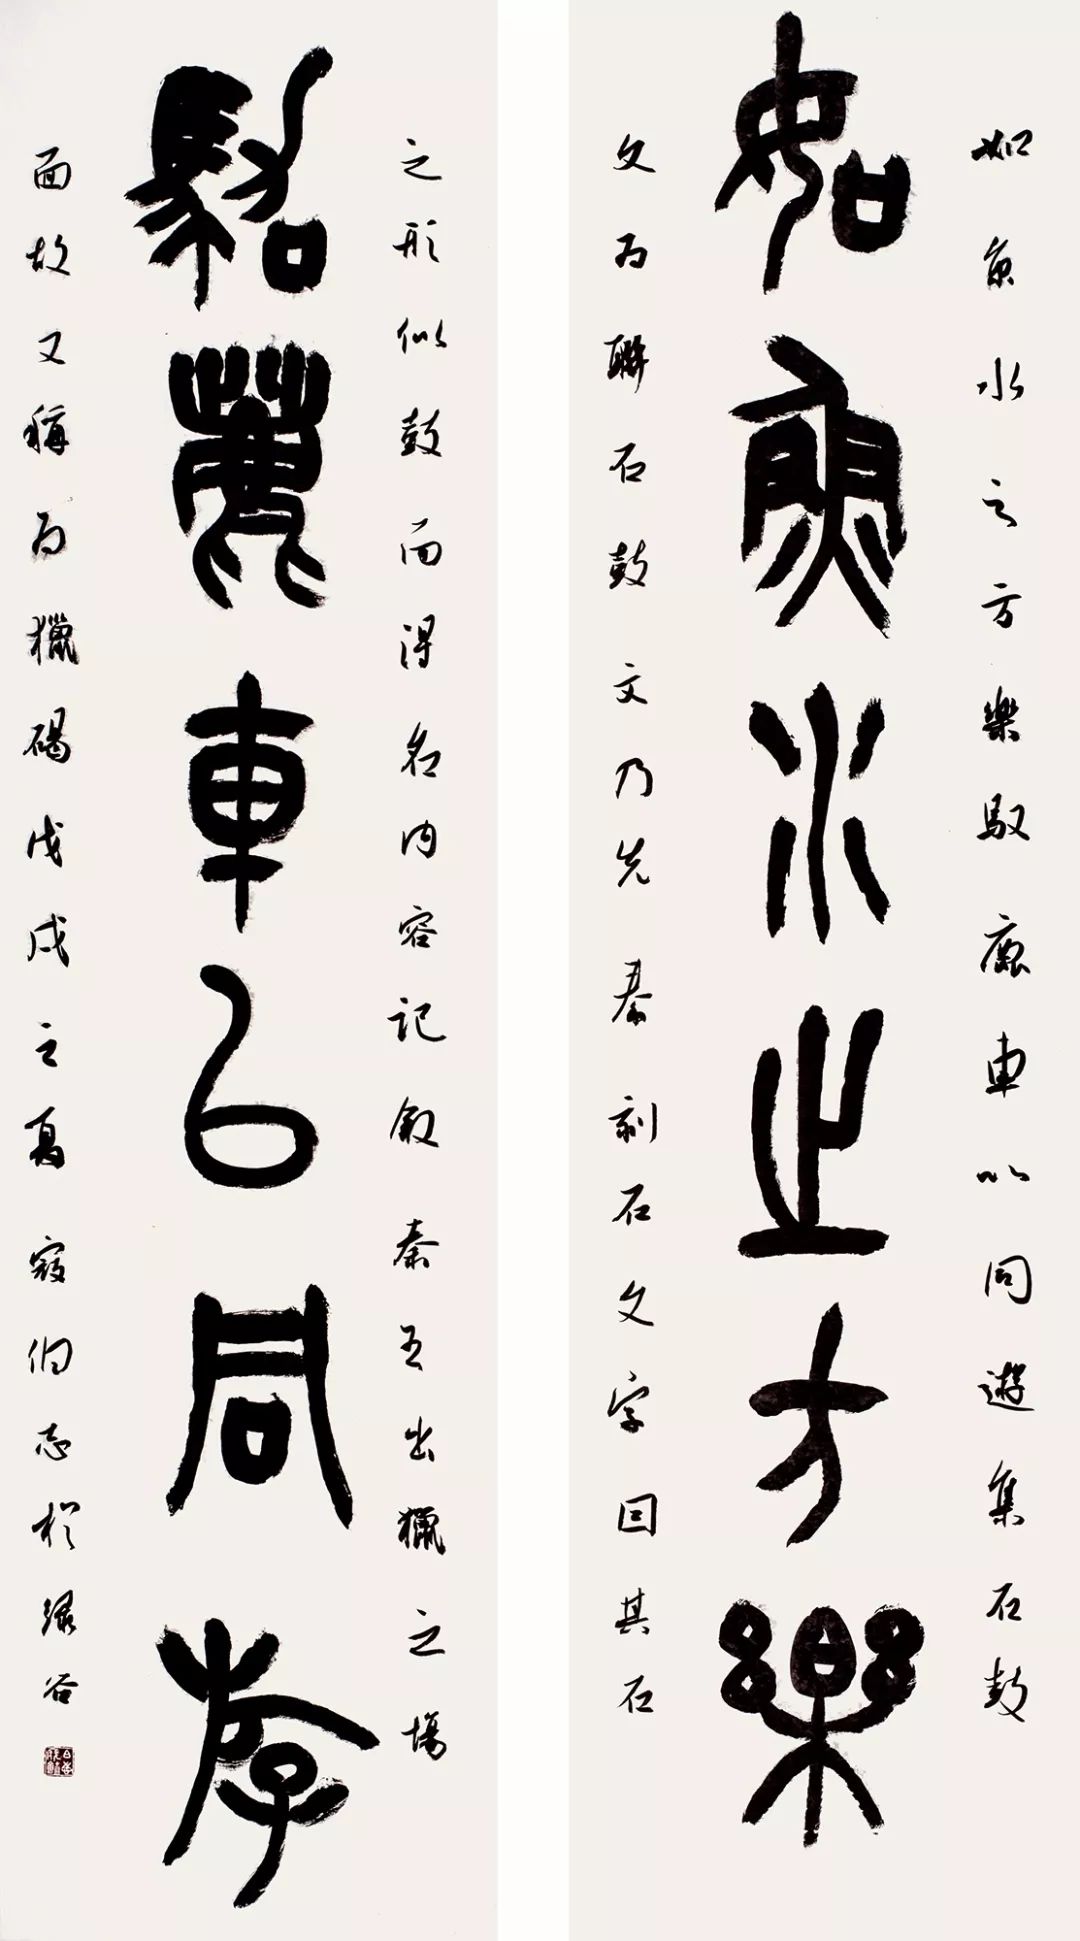 如魚水之方樂馭車以同遊集石鼓
如魚水之方樂
文为聯石鼓文乃先秦刻石文字因其石
之形似鼓而得名内容记叙秦王出獵之場
車以同斿
面故又稱为獵碣戊戌之夏寇志於谷